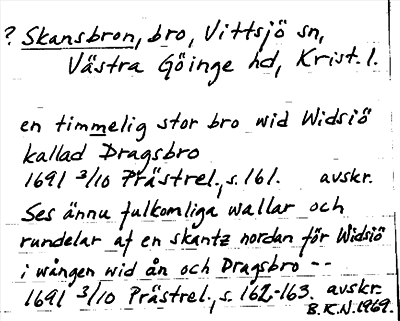 ? Skansbron, bro, Vittsjö sn,
Västra Göinge hd, Krist. l.
en timmelig stor bro wid Widsiö
kallad Dragsbro
1691 3/10 Prästrel., s. 161. avskr.
Ses ännu fulkomliga wallar och
rundelar af en skantz nordan för Widsiö
i wången wid ån och Dragsbro --
1691 3/10 Prästrel., s. 162-163. avskr.
B.K.N. 1969.